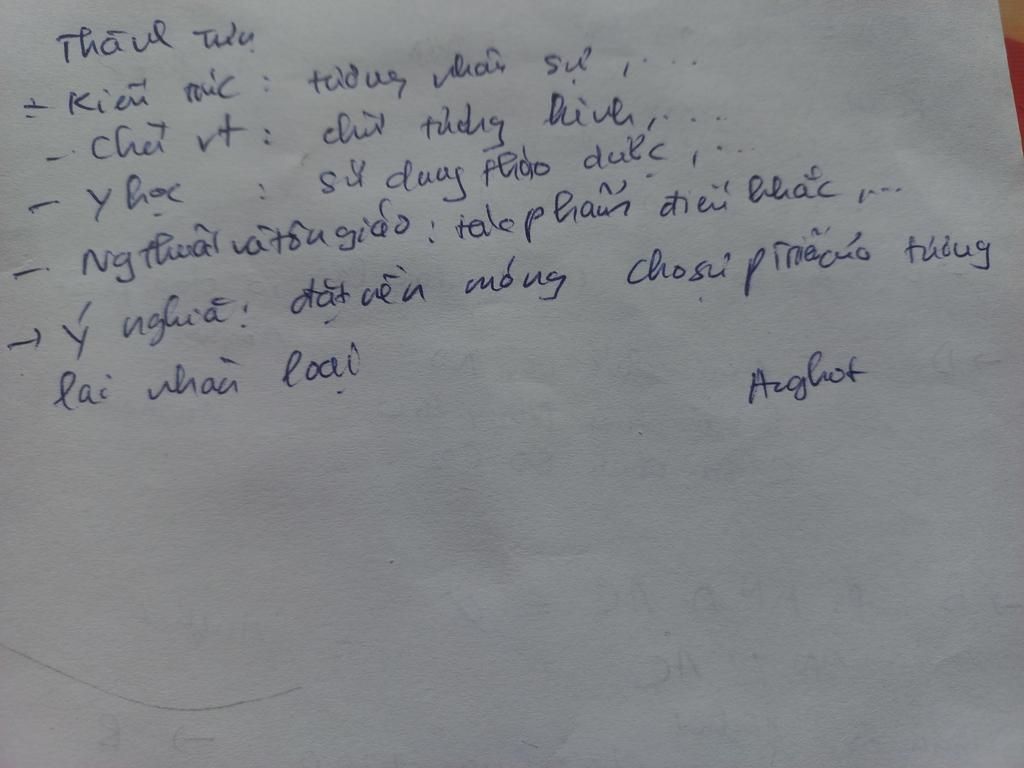 Thành tựu
- Kiến trúc : tượng nhân sư , ...
- Chữ vt : chữ tượng hình, ...
- Y học : sử dụng thảo dược , ...
- Ng thuật và tôn giáo : tác phẩm điêu khắc , ...
→ Ý nghĩa : đặt nền móng cho sự của tương
lai nhân loại